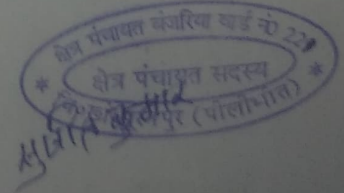 क्षेत्र पंचायत बंजरिया वार्ड नं0 221
क्षेत्र पंचायत सदस्य
पुर (पीलीभीत)